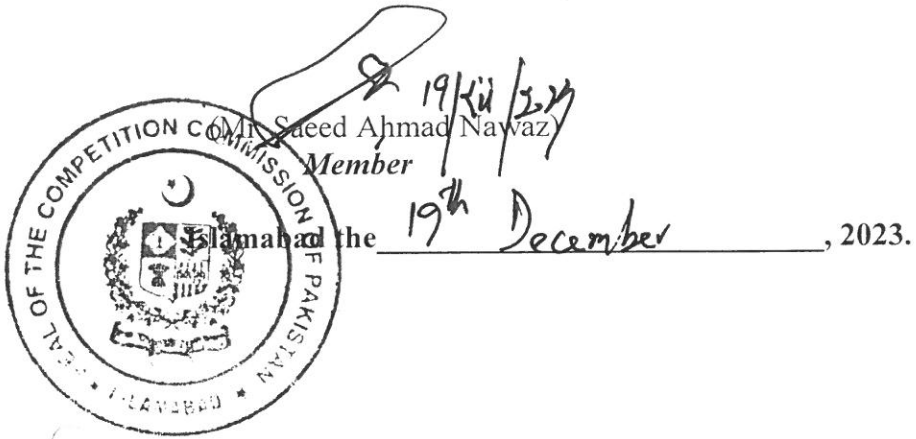 19/xii/2023
(Mr. Saeed Ahmad Nawaz)
Member
Islamabad the 19th December, 2023.
SEAL OF THE COMPETITION COMMISSION OF PAKISTAN
* ISLAMABAD *